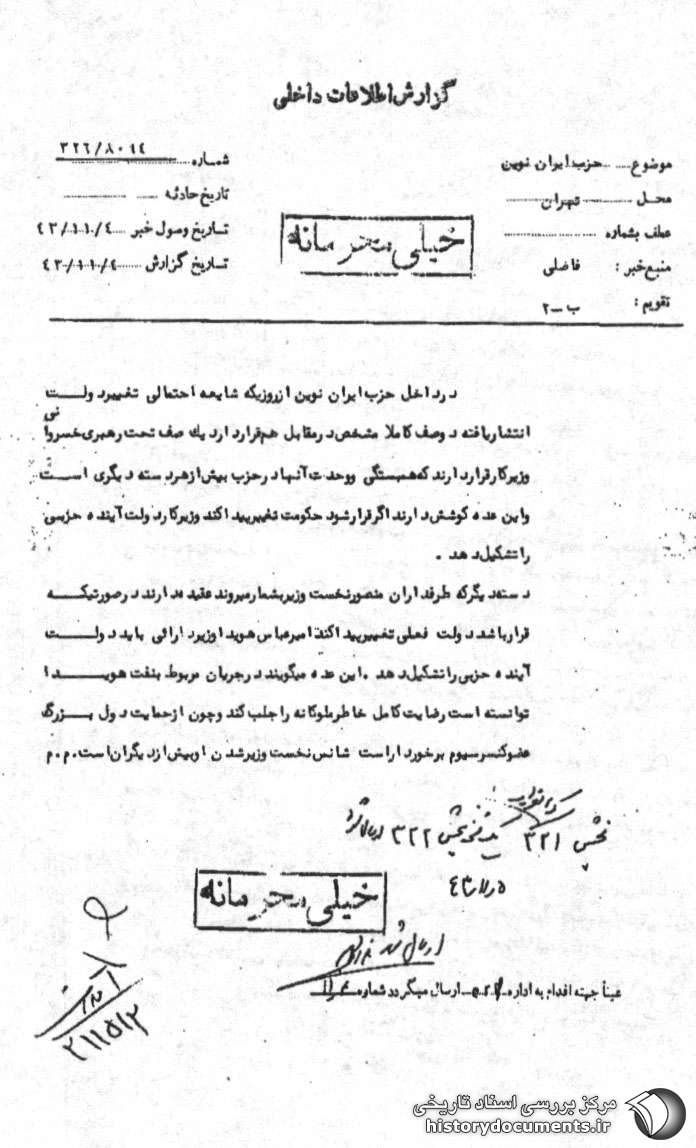 گزارش اطلاعات داخلی
موضوع حزب ایران نوین
محل تهران
عطف بشماره
منبع خبر : فاضلی
تقویم : ب ــ ۲
شماره
تاریخ حادثه
تاریخ وصول خبر ۴۳/۱۰/۴
تاریخ گزارش ۴۳/۱۰/۴
خیلی محرمانه
در داخل حزب ایران نوین از روزیکه شایعه احتمالی تغییر دولت
انتشار یافته دو صف کاملا مشخص در مقابل هم قرار دارد یک صف تحت رهبری خسروانی
وزیر کار قرار دارند که همبستگی ووحدت آنها در حزب بیش از هر دسته دیگری است
و این عده کوشش دارند اگر قرار شود حکومت تغییر پیدا کند وزیر کار دولت آینده حزبی
را تشکیل دهد .
دسته دیگر که طرفداران منصور نخست وزیر بشمار میروند عقیده دارند در صورتیکه
قرار باشد دولت فعلی تغییر پیدا کند امیر عباس هویدا وزیر دارائی باید دولت
آینده حزبی را تشکیل دهد . این عده میگویند در جریان مربوط بنفت هویدا
توانسته است رضایت کامل خاطر ملوکانه را جلب کند و چون از حمایت دول بزرگ
عضو کنسرسیوم برخوردار است شانس نخست وزیر شدن او بیش از دیگران است . م . م
بخش ۳۲۱
بخش ۳۲۲
خیلی محرمانه
ارسال شد
عیناً جهته اقدام به اداره ارسال میگردد شماره
مرکز بررسی اسناد تاریخی
historydocuments.ir